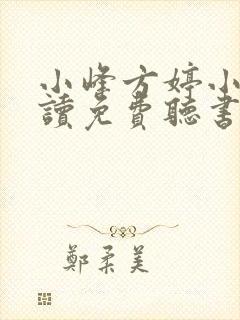 小峰方婷小
讀免費聽書
鄭柔美